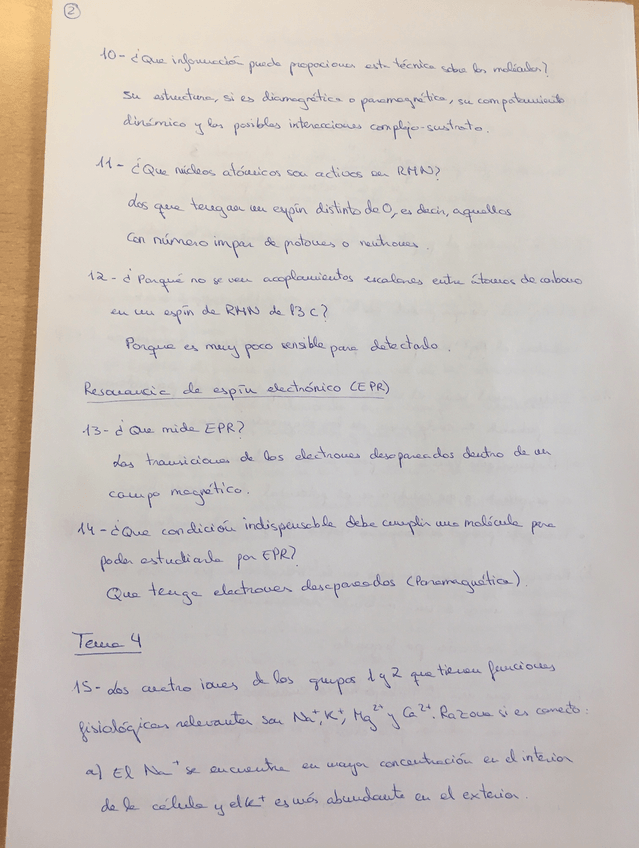 2
10- ¿Que información puede proporcionar esta técnica sobre las moléculas?
Su estructura, si es diamagnética o paramagnética, su comportamiento
dinámico y las posibles interacciones complejo-sustrato.
11- ¿Que núcleos atómicos son activos en RMN?
Los que tengan un espín distinto de 0, es decir, aquellos
con número impar de protones o neutrones.
12- ¿Porqué no se ven acoplamientos escalares entre átomos de carbono
en un espín de RMN de 13C?
Porque es muy poco sensible para detectarlo.
Resonancia de espín electrónico (EPR)
13- ¿Que mide EPR?
Las transiciones de los electrones desapareados dentro de un
campo magnético.
14- ¿Que condición indispensable debe cumplir una molécula para
poder estudiarla por EPR?
Que tenga electrones desapareados (Paramagnética).
Tema 4
15- Los cuatro iones de los grupos 1 y 2 que tienen funciones
fisiológicas relevantes son Na⁺, K⁺, Mg²⁺ y Ca²⁺. Razona si es correcto:
a) El Na⁺ se encuentra en mayor concentración en el interior
de la célula y el K⁺ es más abundante en el exterior.